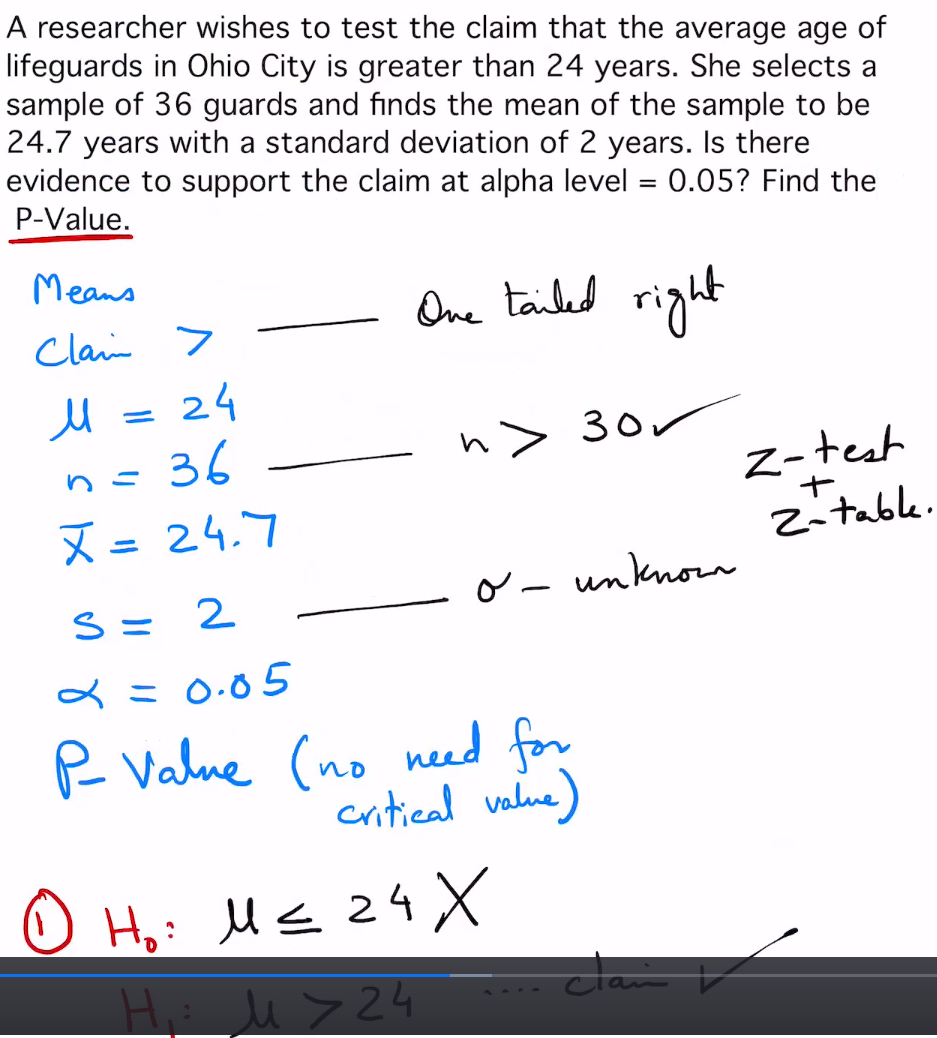 A researcher wishes to test the claim that the average age of
lifeguards in Ohio City is greater than 24 years. She selects a
sample of 36 guards and finds the mean of the sample to be
24.7 years with a standard deviation of 2 years. Is there
evidence to support the claim at alpha level = 0.05? Find the
P-Value.
Means
Claim > — One tailed right
μ = 24
n = 36 — n > 30 ✓
Z-test
+
Z-table.
x̄ = 24.7
s = 2 — σ - unknown
α = 0.05
P-Value (no need for
critical value)
① H₀: μ ≤ 24 X
H₁: μ > 24 .... claim ✓